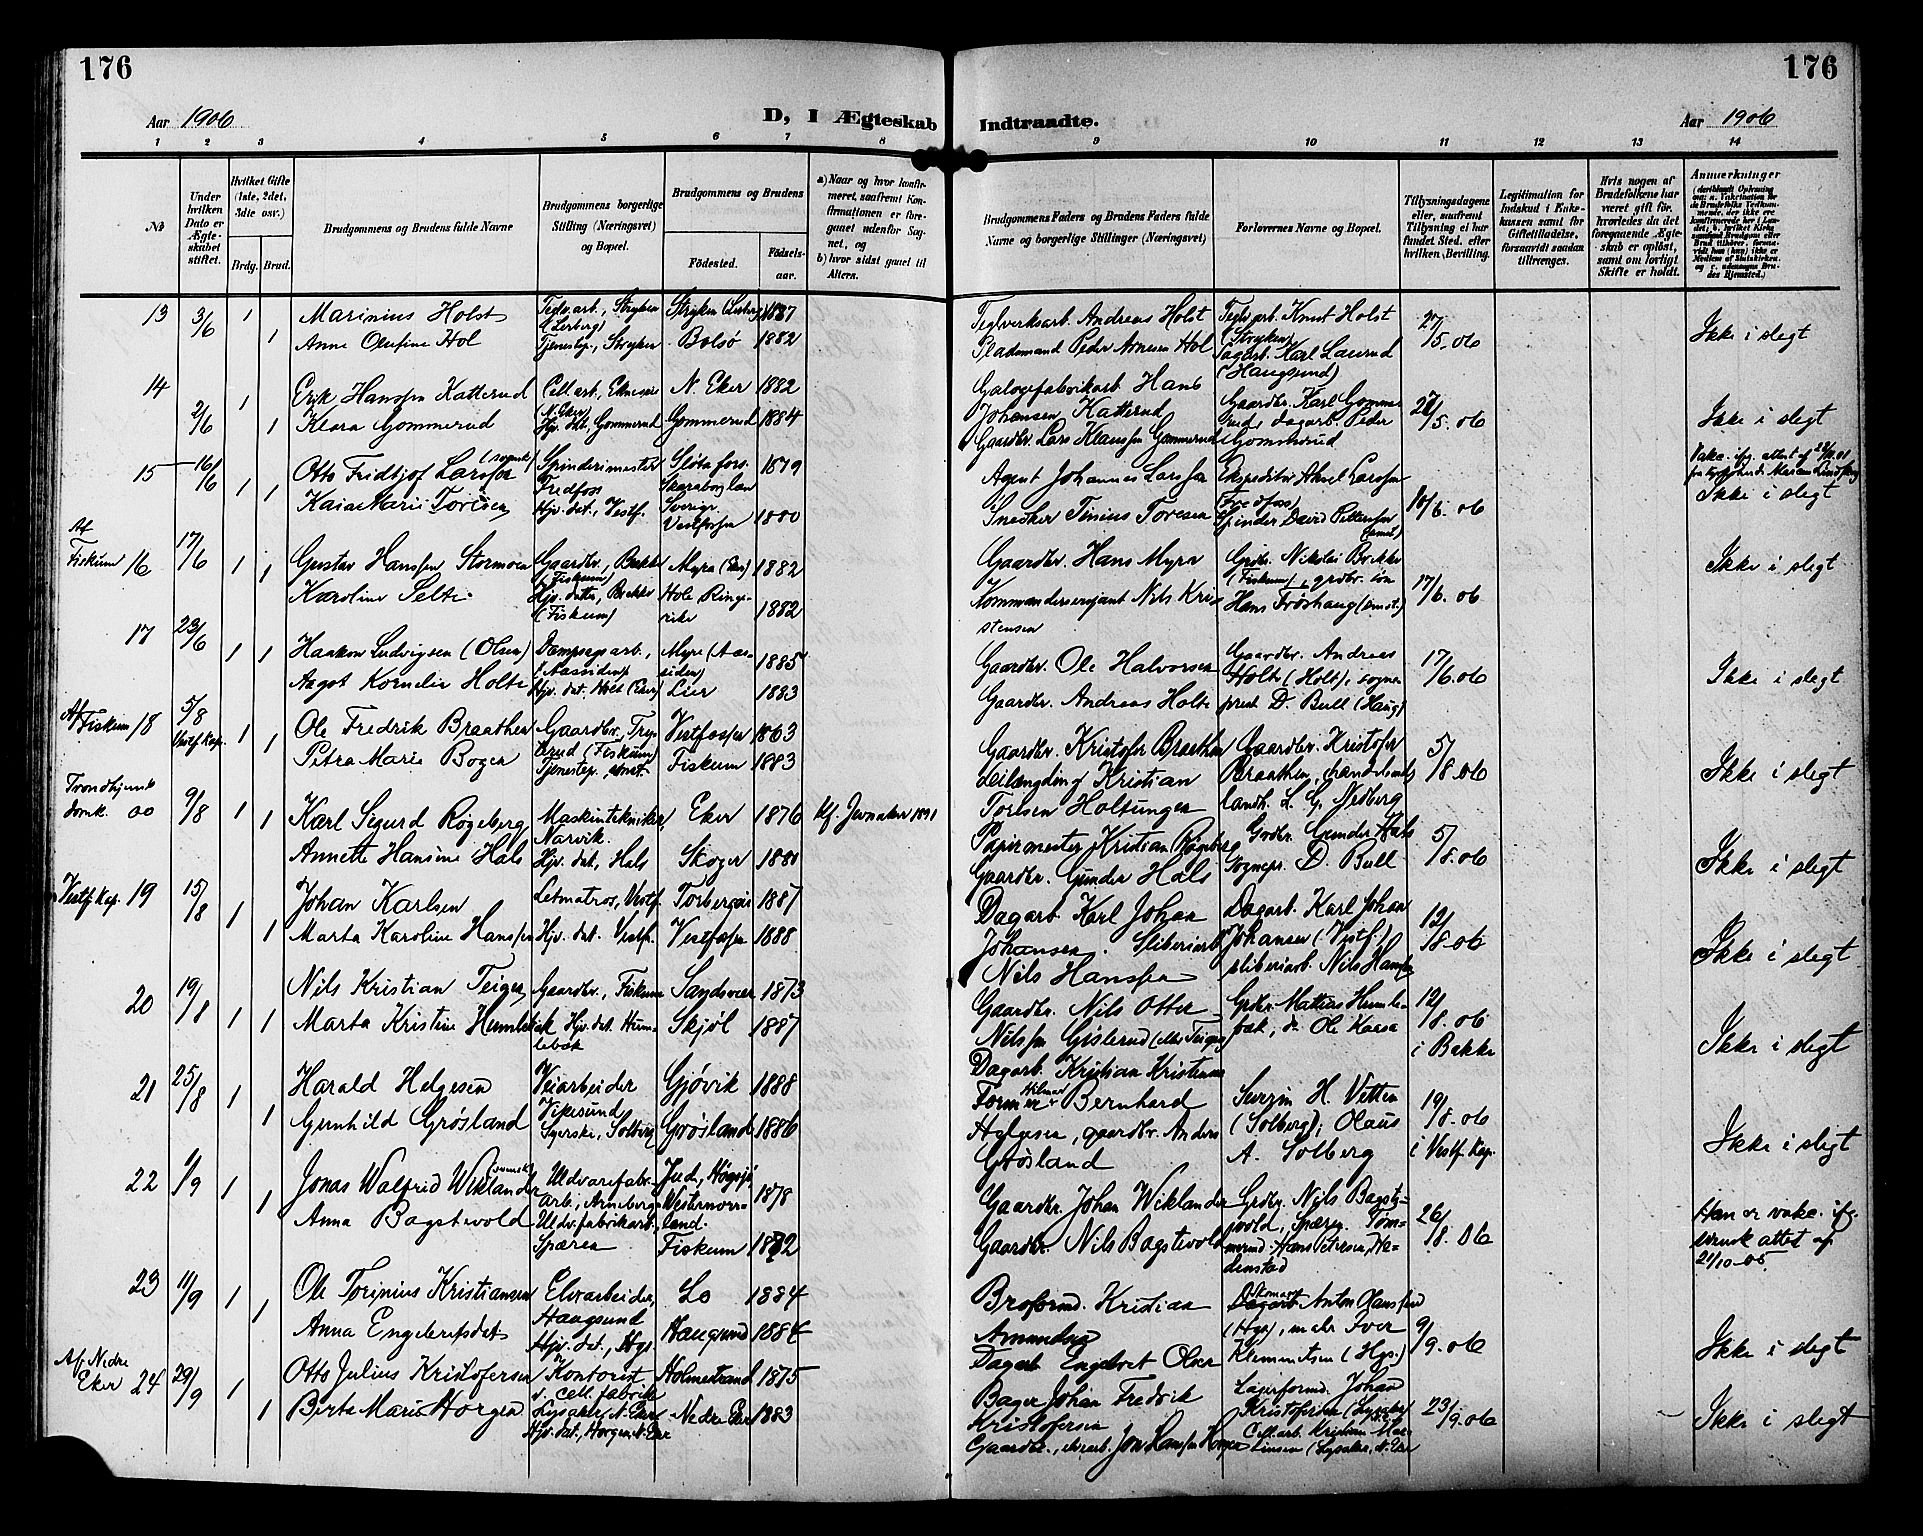 176
176
Aar 1906
D, I Ægteskab Indtraadte.
Aar 1906
1 2 3 4 5 6 7 8 9 10 11 12 13 14
№
Under hvilken Dato er Ægteskabet stiftet.
Hvilket Gifte (1ste, 2det, 3die osv.)
Brdg. Brud.
Brudgommens og Brudens fulde Navne
Brudgommens borgerlige Stilling (Næringsvei) og Bopæl.
Brudgommens og Brudens
Fødested.
Fødselsaar.
a) Naar og hvor konfirmeret, saafremt Konfirmationen er foregaaet udenfor Sognet, og
b) hvor sidst gaaet til Alters.
Brudgommens Faders og Brudens Faders fulde Navne og borgerlige Stillinger (Næringsvei)
Forlovernes Navne og Bopæl.
Tillysningsdagene eller, saafremt Tillysning ei har fundet Sted, efter hvilken Bevilling.
Legitimation for Indskud i Enkekassen samt for Giftetilladelse, forsaavidt saadan tiltrænges.
Hvis nogen af Brudefolkene har været gift før, hvorledes da det foregaaende Ægteskab er opløst, samt om lovligt Skifte er holdt.
Anmerkninger
13 3/6 1 Marinius Holst Teglv.arb., Stryken (Lerberg) Stryken 1887 Teglverksarb. Andreas Holst Teglv.arb. Knut Holst (Stryken) 27/5.06 Ikke i slegt
1 Anne Olufine Hol Tjenestep., Stryken Bolsø 1882 Pladsmand Peder Arnesen Hol Dagarb. Karl Laurud (Haugsund)
14 2/6 1 Erik Hanssen Katterud Cell.arb., Eknesøe (N. Eker) N. Eker 1882 Galogefabrikarb. Hans Johansen Katterud Gaardbr. Karl Gommerud, dagarb. Peder Gommerud 27/5.06 Ikke i slegt
1 Klara Gommerud Hjv. dat., Gommerud Gommerud 1884 Gaardbr. Lars Klaussen Gommerud
15 16/6 1 Otto Fridtjof Larsson (svensk) Spinderimester Fredfoss Sløta fors. Skaraborg län Sverige 1879 Agent Johannes Larsson Ekspeditør Aksel Larsson (Fredfoss) 10/6.06 Ikke i slegt
1 Kaisa Marie Toresen Hjv. dat., Vestf. Vestfossen 1880 Snedker Tinius Toresen Spinder David Pettersen
Af Fiskum 16 17/6 1 Gustav Hanssen Stormoen Gaardbr., Bakke (Fiskum) Myra 1882 Gaardbr. Hans Myra Grdbr. Nikolai Bakke (Fiskum), grdbr. 17/6.06 Ikke i slegt
1 Karoline Selte Hjv. dat., Bakke (Fiskum) Hole Ringerike 1882 Kommandersersjant Nils Kristensen Hans Frøshaug
17 23/6 1 Haakon Ludvigsen (Olsen) Dampsagarb., (Aassiden) Myre (Aassiden) 1885 Gaardbr. Ole Halvorsen Gaardbr. Andreas Holte (Holt), sogneprest D. Bull (Haug) 17/6.06 Ikke i slegt
1 Aagot Kornelie Holte Hjv. dat. Holt (Eker) Lier 1883 Gaardbr. Andreas Holte
Af Fiskum 18 5/8 Vestf. Kap. 1 Ole Fredrik Braathen Gaardbr., Tryterud (Fiskum) Vestfossen 1863 Gaardbr. Kristofer Braathen Gaardbr. Kristofer Braathen, handelsmand L. G. Nedberg 5/8.06 Ikke i slegt
1 Petra Marie Bogen Tjenestep., smst. Fiskum 1883 Leilænding Kristian Toresen Holtungen
Trondhjems domk. 00 9/8 1 Karl Sigurd Røgeberg Maskintekniker, Narvik. Eker 1876 kf. Jevnaker 1891 Papirmester Kristian Røgeberg Grdbr. Gunder Hals 5/8.06 Ikke i slegt
1 Annette Hansine Hals Hjv. dat., Hals Skoger 1880 Gaardbr. Gunder Hals Sognepr. D. Bull
Vestf. Kap. 19 15/8 1 Johan Karlsen Letmatros, Vestf. 1887 Dagarb. Karl Johan Johansen Dagarb. Karl Johan Johansen (Vestf.) 12/8.06 Ikke i slegt
1 Marta Karoline Hanssen Hjv. dat. Vestf. Vestfossen 1888 Sliberiarb. Nils Hanssen sliberiarb. Nils Hanssen
20 19/8 1 Nils Kristian Teigen Gaardbr., Fiskum Sandsvær 1873 Gaardbr. Nils Otter Nilssen Gislerud (eller Teigen) Grdbr. Mattias Humlebæk, do. Ole Kaasa 12/8.06 i Bakke Ikke i slegt
1 Marta Kristine Humlebæk Hjv. dat. Humlebæk Skjøl 1887 Dagarb. Kristian Kristensen
21 25/8 1 Harald Helgesen Veiarbeider Vikesund Gjøvik 1888 Former Hilmar Bernhard Helgesen, Severin H. Vetten (Solberg); Olaus A. Solberg 19/8.06 i Vestf. Kap. Ikke i slegt
1 Gunhild Grøsland Syerske, Solberg Grøsland 1886 gaardbr. Anders Grøsland
22 1/9 1 Jonas Walfrid Wiklander (svensk) Uldvarefabr. arb., Arneberg Jud, Høgsjö, Westernorrland. 1878 Gaardbr. Johan Wiklander Grdbr. Nils Bagstevold, Spæren. Tømmerm. Hans Petersen, 26/8.06 Han er vakc. ifg. svensk attest af 21/10-05.
1 Anna Bagstevold Uldv.fabrikarb., Spæren Fiskum 1882 Gaardbr. Nils Bagstevold
23 11/9 1 Ole Torinius Kristiansen Elvearbeider, Haugsund Lo 1884 Broformd. Kristian Amundsen Anton Hanssen (Hgs), maler Iver Klementsen (Hgs.) 9/9.06 Ikke i slegt
1 Anna Engebretsdat. Hjv. dat., Hgs. Haugsund 1884 Dagarb. Engebret Olsen
Af Nedre Eker 24 29/9 1 Otto Julius Kristofersen Kontorist v. cell. fabrik Lysaker, N. Eker Holmestrand 1875 Bager Johan Fredrik Kristofersen Lagerformd. Johan Kristofersen (Lysaker) 23/9.06 Ikke i slegt
1 Berte Marie Horgen Hjv. dat., Horgen N. Eker Nedre Eker 1883 Gaardbr., elvearb. Jon Hanssen Horgen Cell.arb. Kristian (Lysaker, N. Eker